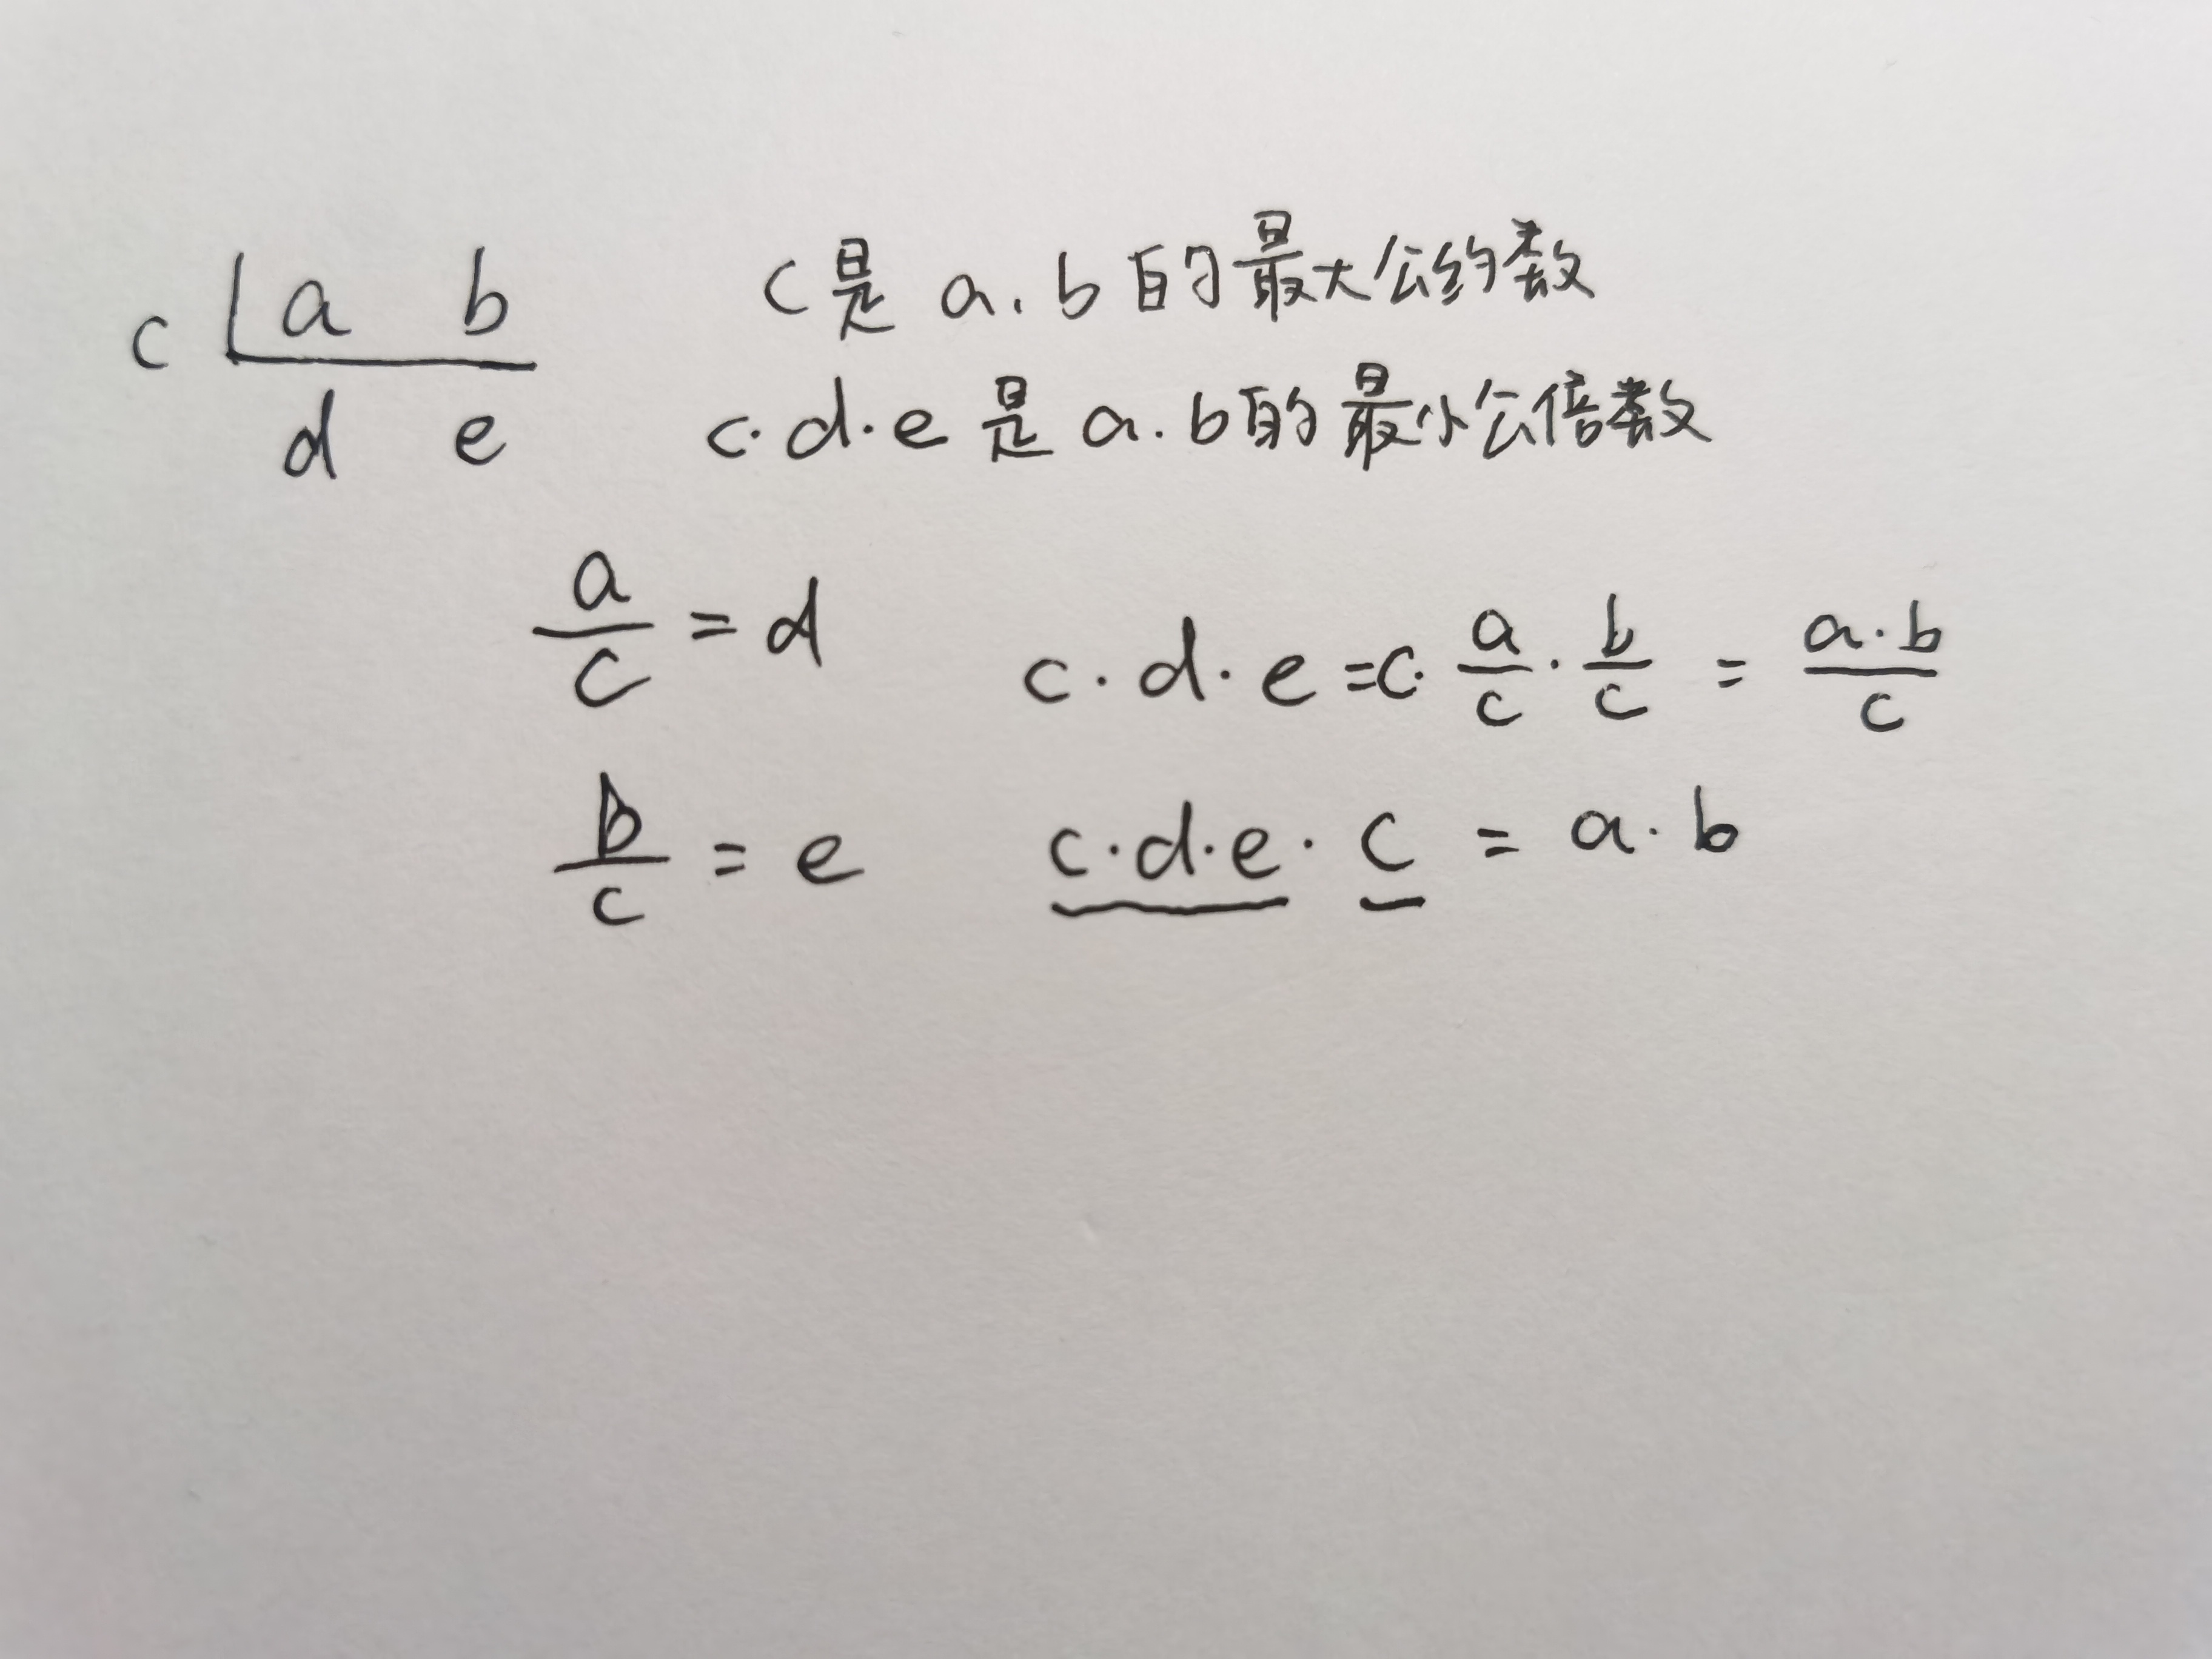 c | a b c是 a.b 的最大公约数
d e c·d·e 是 a.b的最小公倍数
a/c = d c·d·e =c· a/c · b/c = a·b/c
b/c = e c·d·e · c = a·b